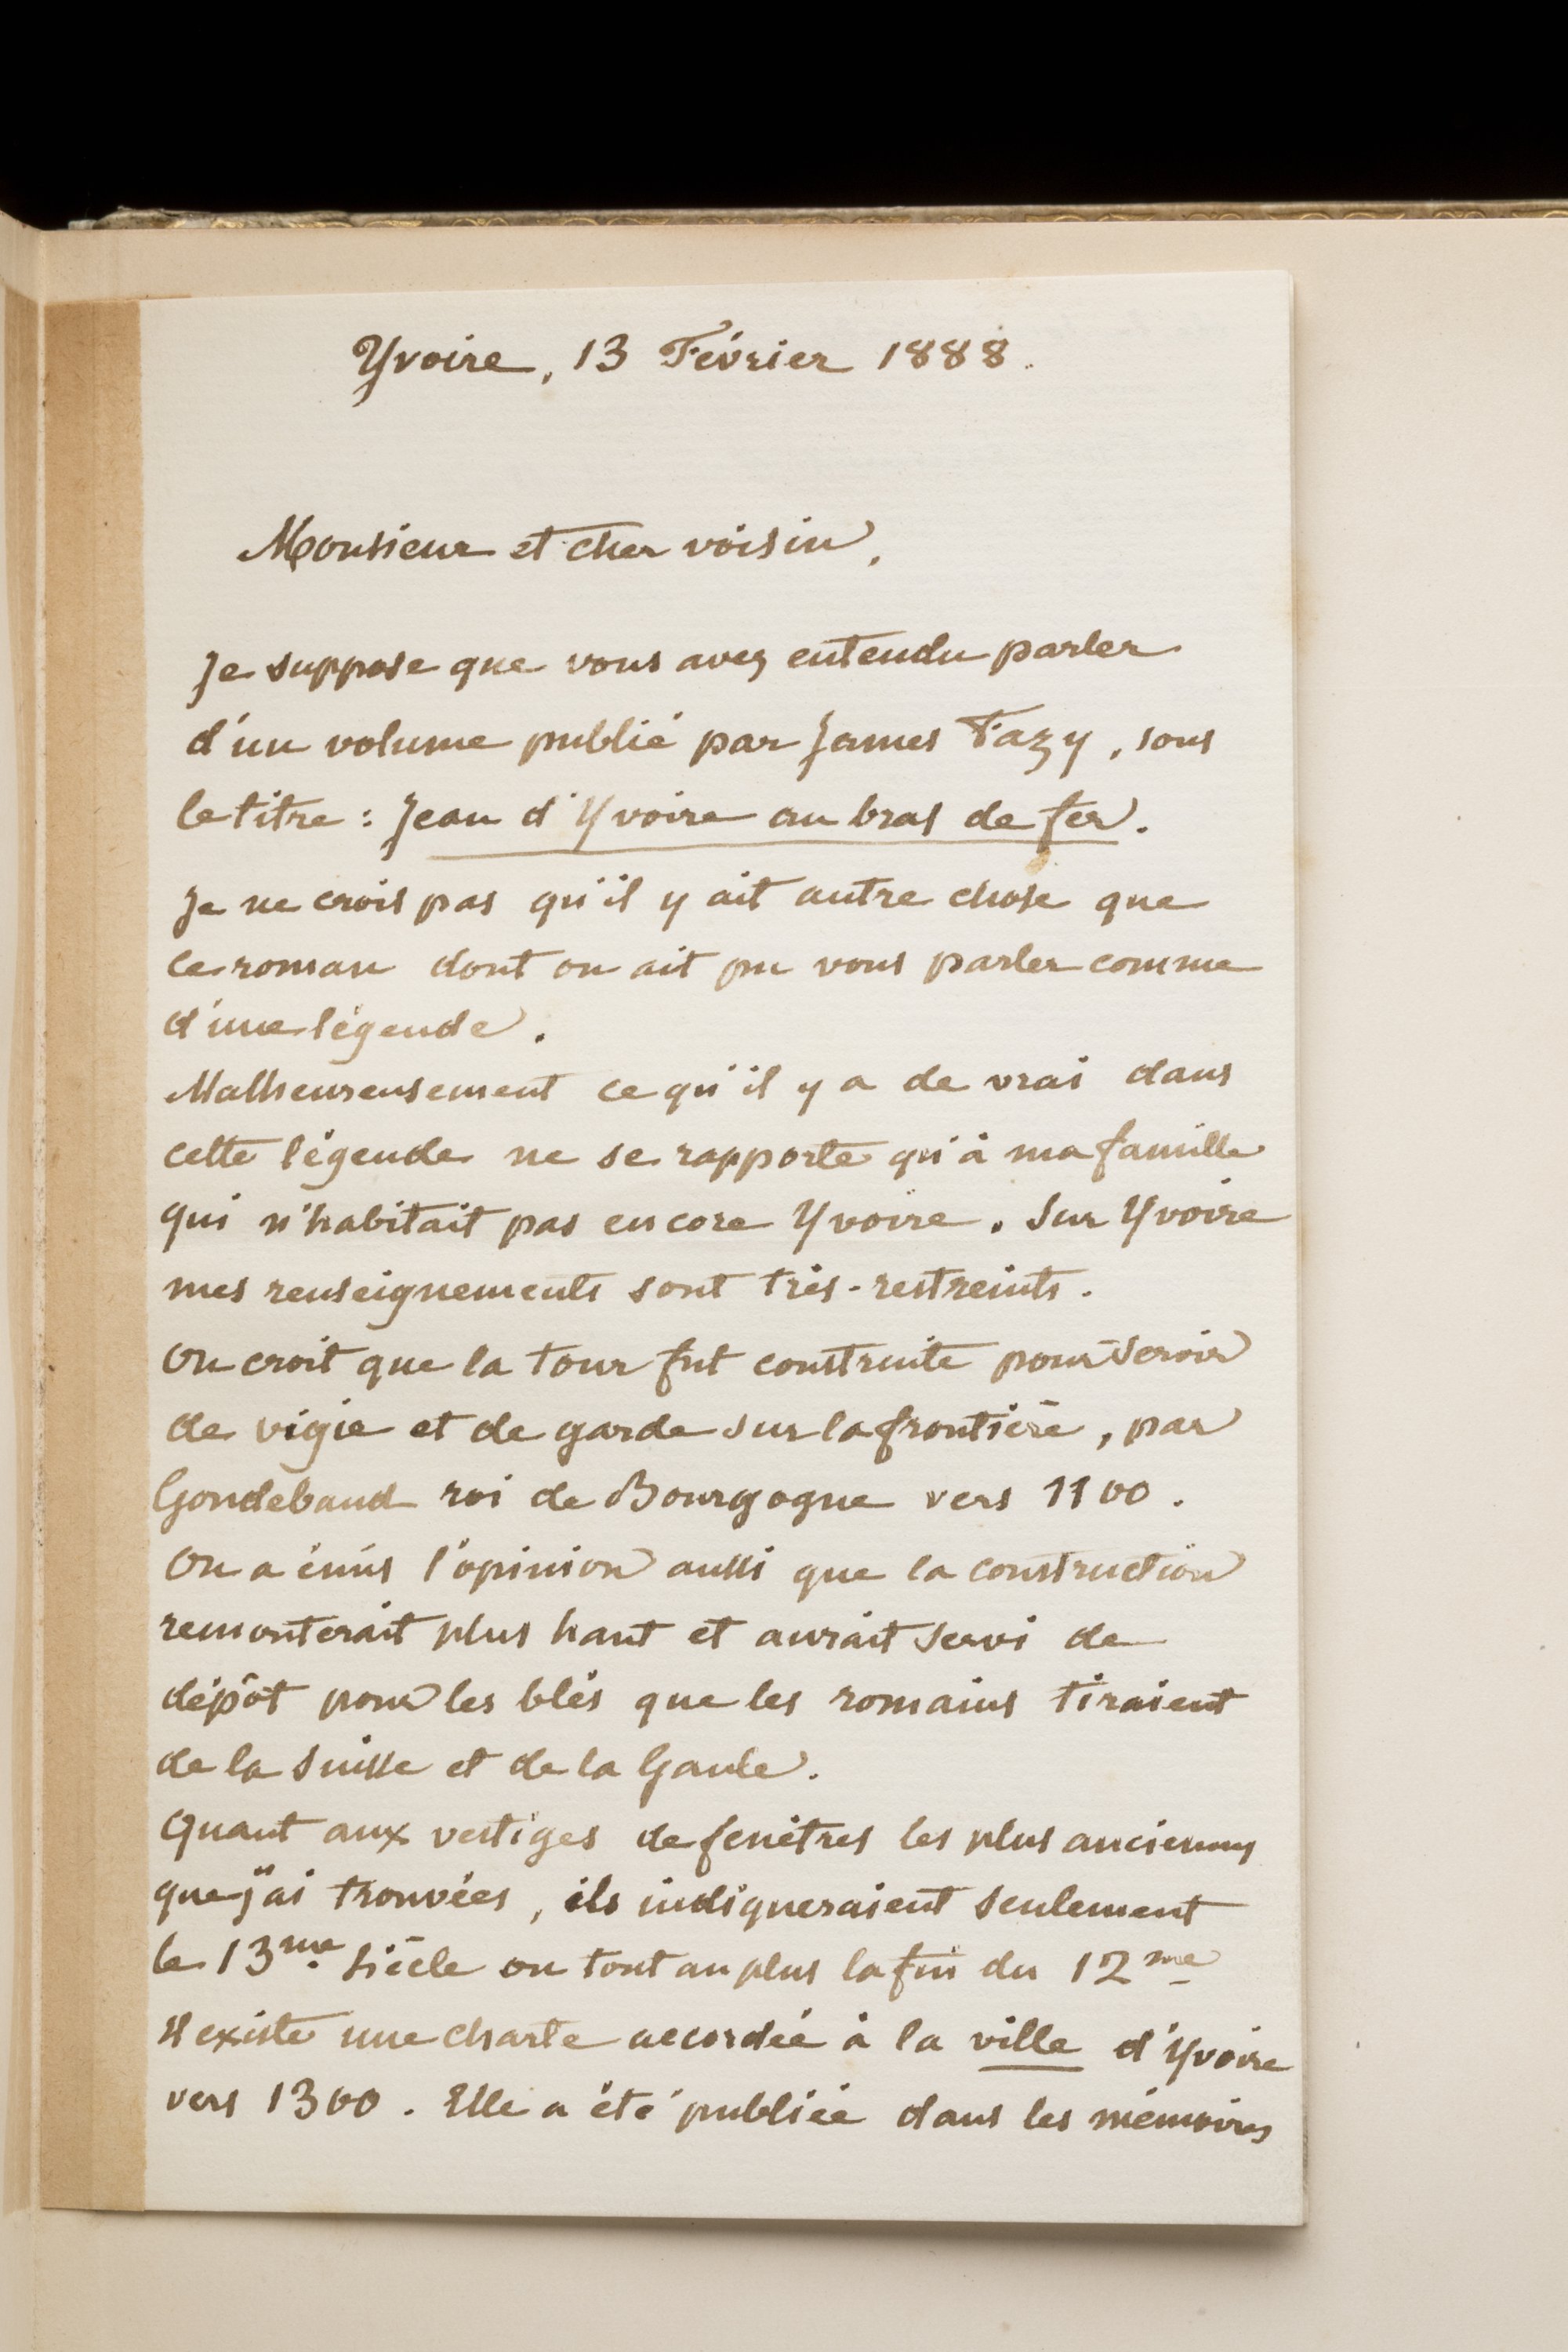 Yvoire, 13 Février 1888.
Monsieur et cher voisin,
Je suppose que vous avez entendu parler
d'un volume publié par James Fazy, sous
le titre : Jean d'Yvoire au bras de fer.
Je ne crois pas qu'il y ait autre chose que
ce roman dont on ait pu vous parler comme
d'une légende.
Malheureusement ce qu'il y a de vrai dans
cette légende ne se rapporte qu'à ma famille
qui n'habitait pas encore Yvoire. Sur Yvoire
mes renseignements sont très-restreints.
On croit que la tour fut construite pour servir
de vigie et de garde sur la frontière, par
Gondebaud roi de Bourgogne vers 1100.
On a émis l'opinion aussi que la construction
remonterait plus haut et aurait servi de
dépôt pour les blés que les romains tiraient
de la Suisse et de la Gaule.
Quant aux vestiges de fenêtres les plus anciennes
que j'ai trouvées, ils indiqueraient seulement
le 13me siècle ou tout au plus la fin du 12me
Il existe une charte accordée à la ville d'Yvoire
vers 1300. Elle a été publiée dans les mémoires